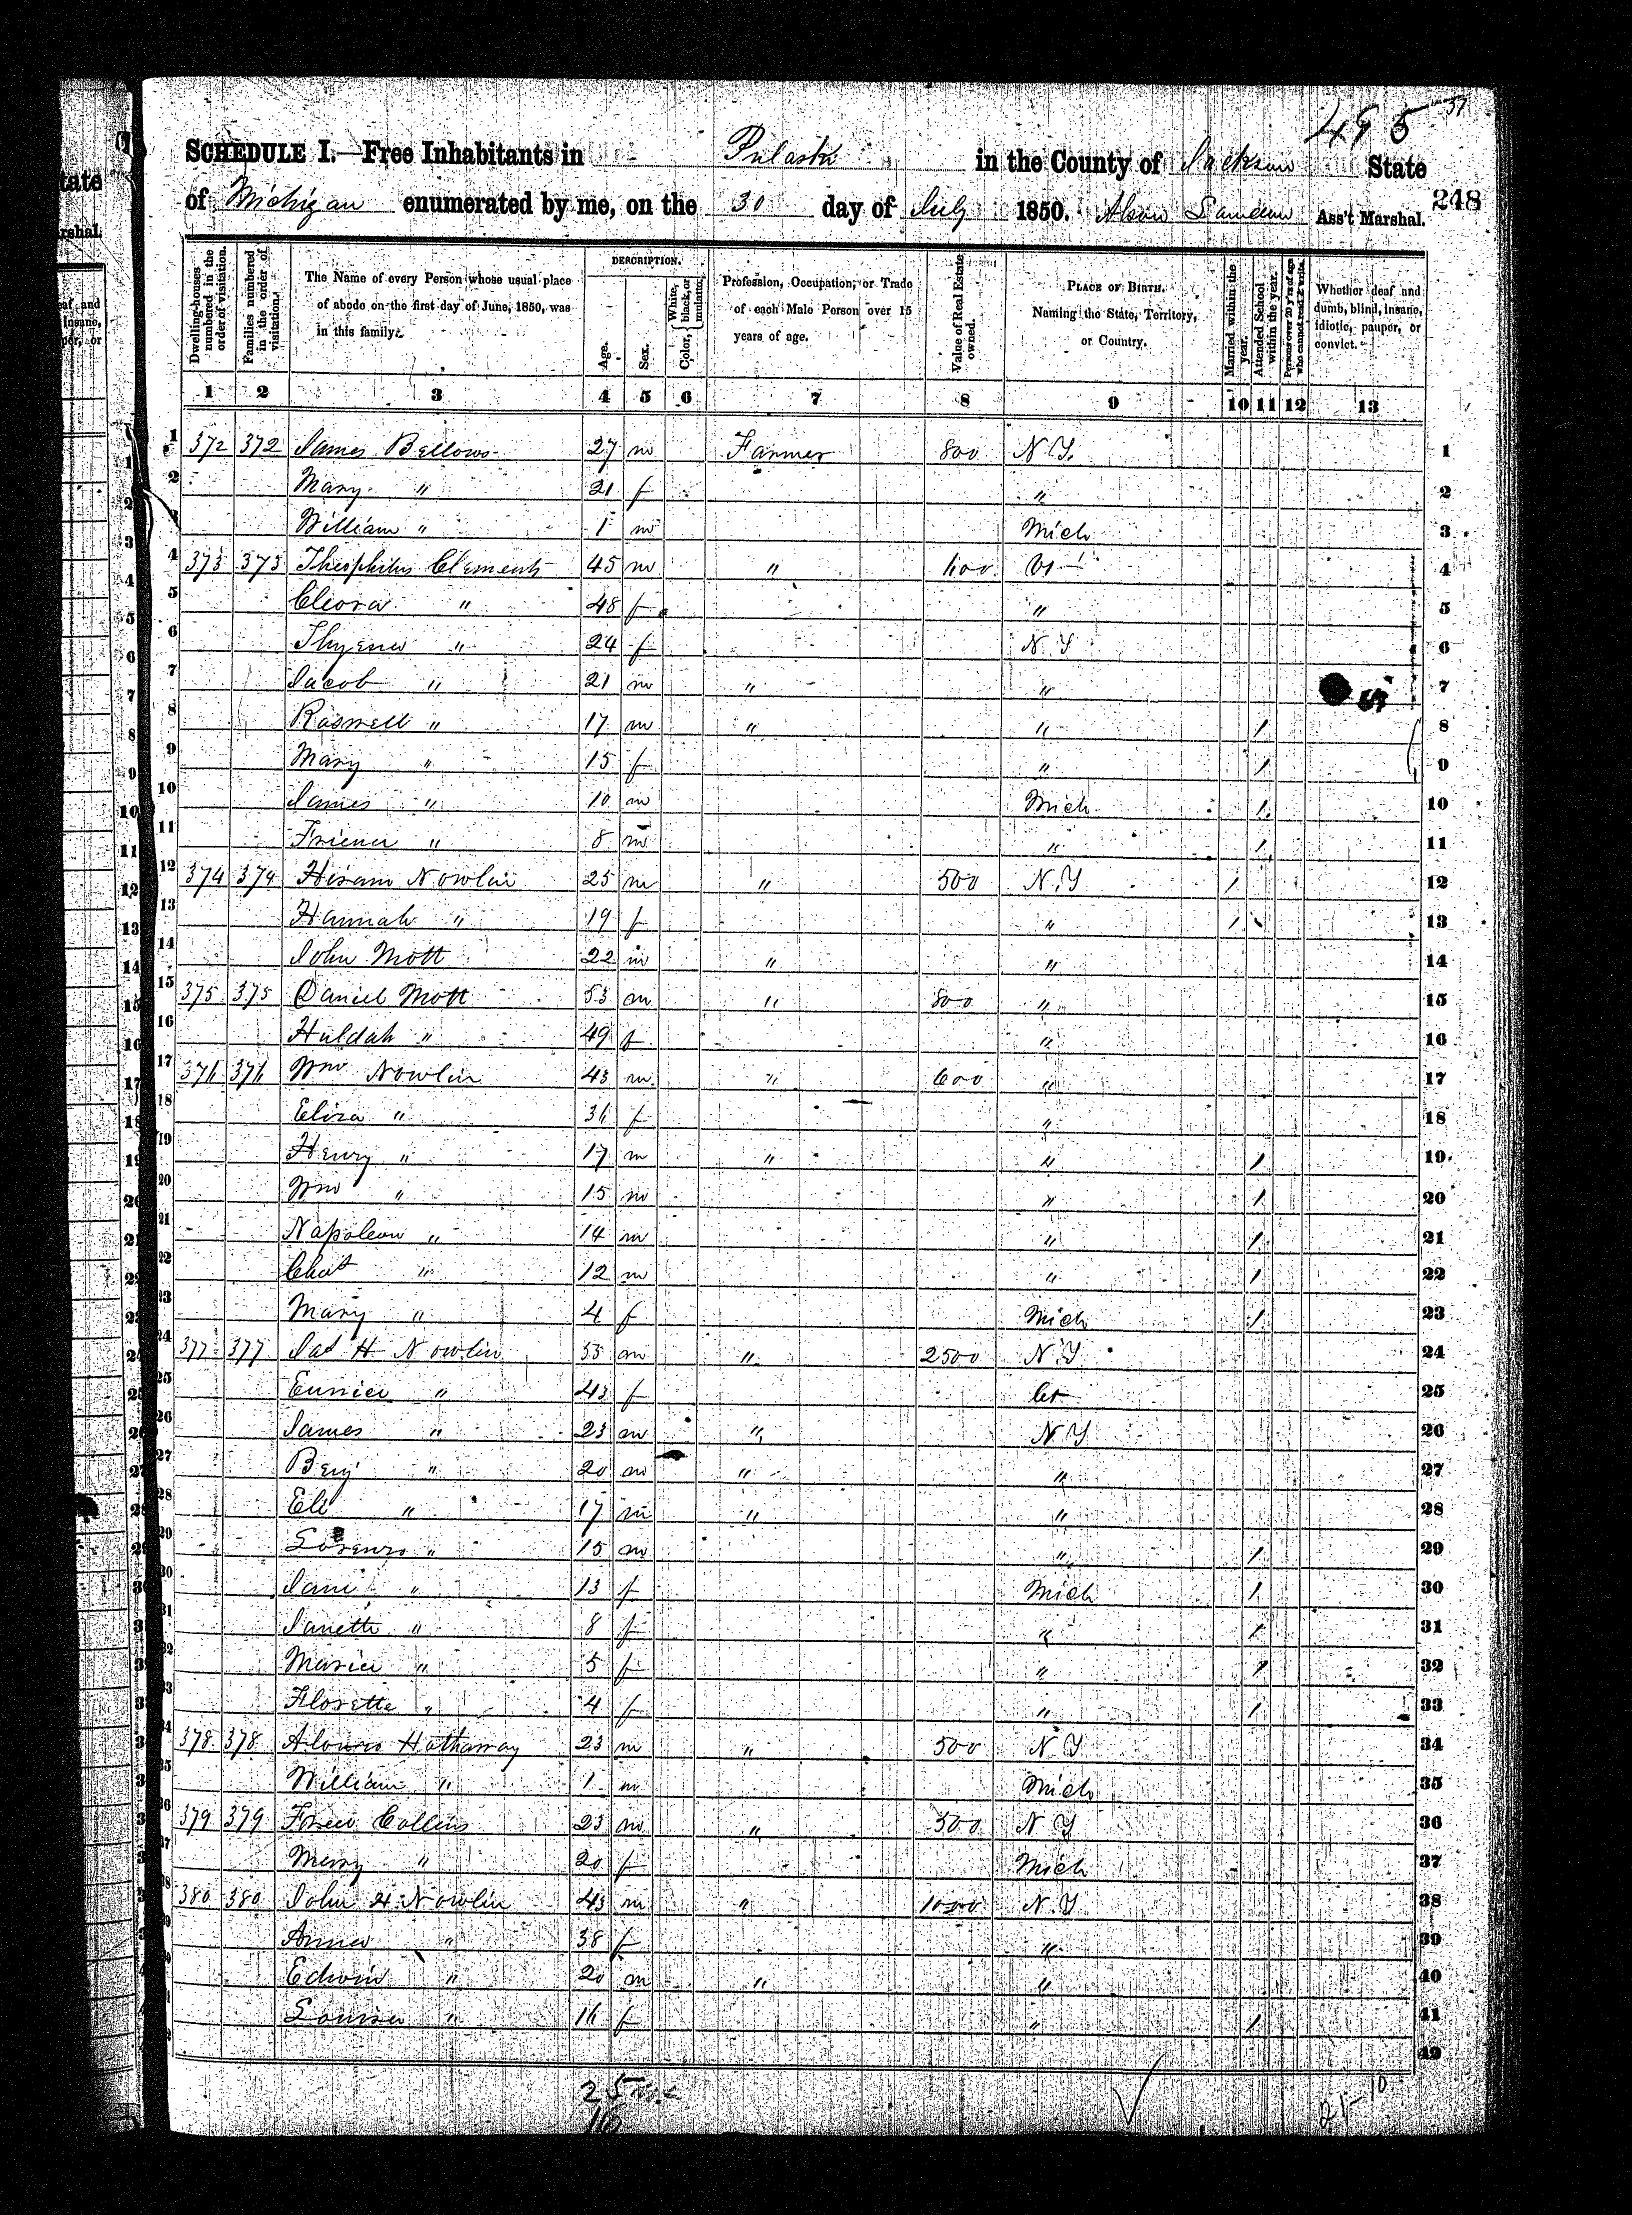 495 31
SCHEDULE I.—Free Inhabitants in Pulaski in the County of Jackson State
of Michigan enumerated by me, on the 30 day of July 1850. Ass't Marshal.
248
Dwelling-houses numbered in the order of visitation.
Families numbered in the order of visitation.
The Name of every Person whose usual place of abode on the first day of June, 1850, was in this family.
DESCRIPTION.
Age.
Sex.
Color, White, black, or mulatto.
Profession, Occupation, or Trade of each Male Person over 15 years of age.
Value of Real Estate owned.
PLACE OF BIRTH. Naming the State, Territory, or Country.
Married within the year.
Attended School within the year.
Persons over 20 y'rs of age who cannot read & write.
Whether deaf and dumb, blind, insane, idiotic, pauper, or convict.
1 2 3 4 5 6 7 8 9 10 11 12 13
1 372 372 James Bellows 27 m Farmer 800 N.Y. 1
2 Mary " 21 f " 2
3 William " 1 m Mich 3
4 373 373 Theophilus Clements 45 m " 1600 Vt 4
5 Cleora " 48 f " 5
6 " 24 f N Y 6
7 Jacob " 21 m " " 7
8 Roswell " 17 m " " 1 8
9 Mary " 15 f " 1 9
10 James " 10 m Mich 1 10
11 " 8 m " 1 11
12 374 374 Hiram Nowlin 25 m " 500 N.Y 1 12
13 Hannah " 19 f " 1 13
14 John Mott 22 m " " 14
15 375 375 Daniel Mott 53 m " 800 " 15
16 Huldah " 49 f " 16
17 376 376 Wm Nowlin 43 m " 600 " 17
18 Eliza " 36 f " 18
19 Henry " 17 m " " 1 19
20 Wm " 15 m " 1 20
21 Napoleon " 14 m " 1 21
22 Chas " 12 m " 1 22
23 Mary " 4 f Mich 1 23
24 377 377 Jas H Nowlin 53 m " 2500 N.Y 24
25 Eunice " 43 f Ct 25
26 James " 23 m " N Y 26
27 Benj " 20 m " " 27
28 Eli " 17 m " " 28
29 Lorenzo " 15 m " 1 29
30 Jane " 13 f Mich 1 30
31 Janette " 8 f " 1 31
32 Maria " 5 f " 1 32
33 Florette " 4 f " 1 33
34 378 378 Alonzo Hathaway 23 m " 500 N Y 34
35 William " 1 m Mich 35
36 379 379 Collins 23 m " 500 N Y 36
37 Mary " 20 f Mich 37
38 380 380 John H Nowlin 43 m " 1000 N.Y 38
39 Anna " 38 f " 39
40 Edwin " 20 m " " 40
41 Louisa " 16 f " 1 41
42
25
16
10